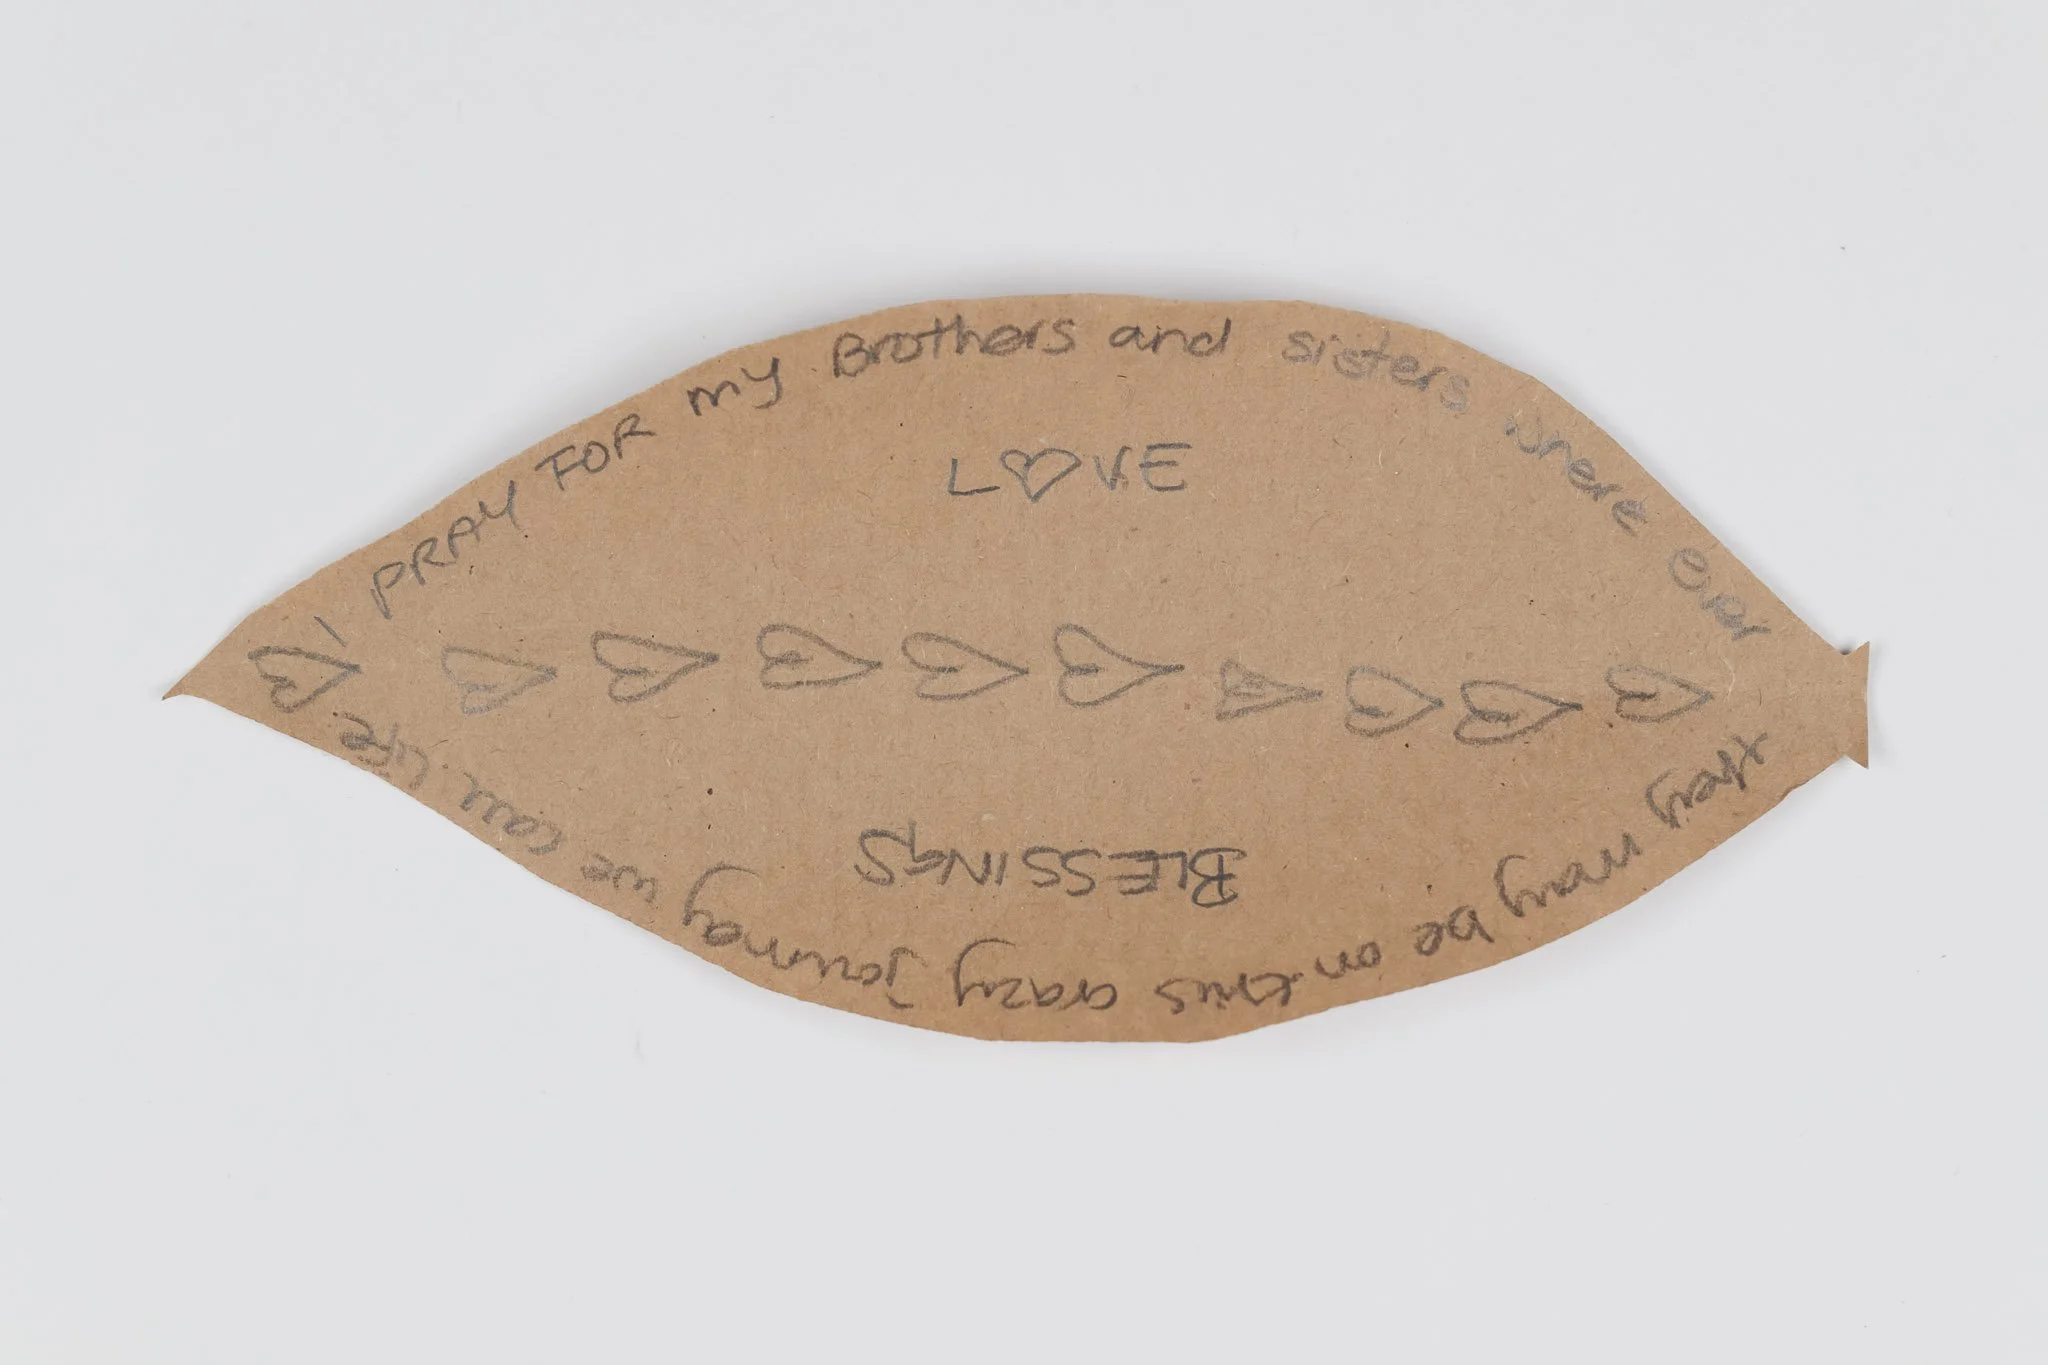 I PRAY FOR my Brothers and sisters where ever
they may be on this crazy journey we call life
LOVE
BLESSINGS